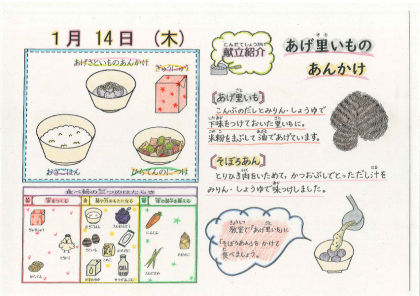 1月 14日 (木)
あげさといものあんかけ
ぎゅうにゅう
むぎごはん
ひりてんのにつけ
食べ物の三つのはたらき
こんだてしょうかい
献立紹介
あげ里いもの
あんかけ
[あげ里いも]
こんぶのだしとみりん・しょうゆで
下味をつけておいた里いもに、
米粉をまぶして油であげています。
[そぼろあん]
とりひき肉をいためて、かつおぶしでとっただし汁を
みりん・しょうゆで味つけしました。
教室で「あげ里いも」に
「そぼろあん」をかけて
食べましょう。